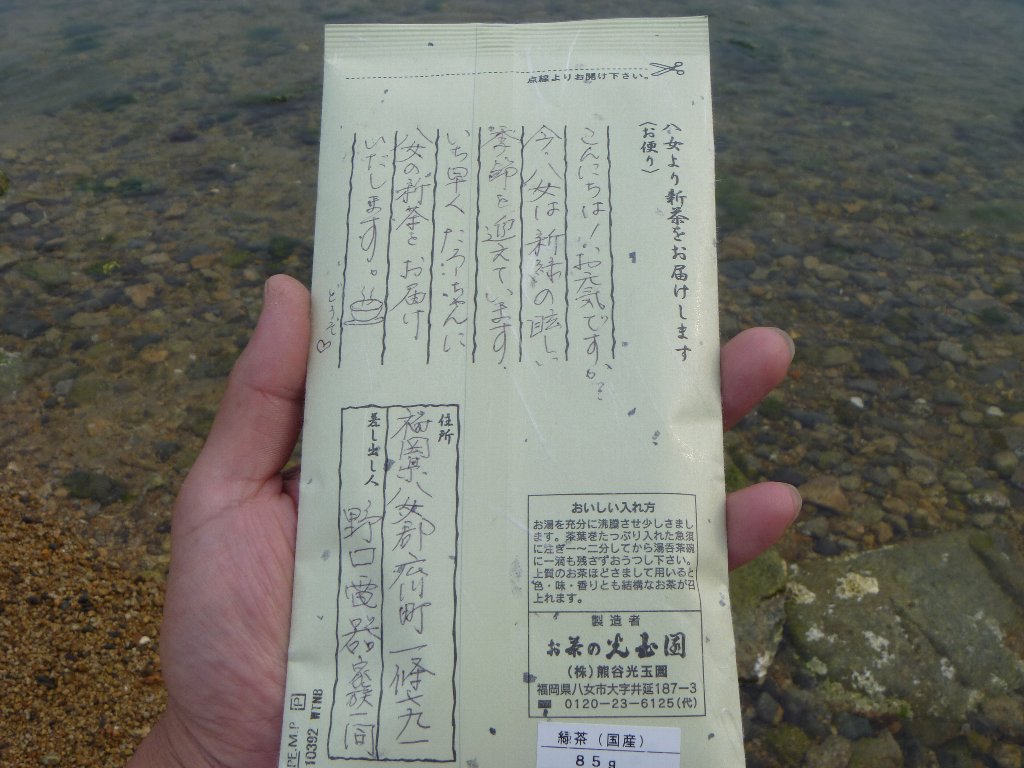 点線よりお開け下さい。
八女より新茶をお届けします
(お便り)
こんにちは!お元気ですか?
今、八女は新緑の眩しい
季節を迎えています。
いち早くたろうちゃんに
八女の新茶をお届け
いたします。
どうぞ♡
住所
福岡県八女郡広川町一條六九一
差し出し人
野口電器家族一同
おいしい入れ方
お湯を充分に沸騰させ少しさまし
ます。茶葉をたっぷり入れた急須
に注ぎ一〜二分してから湯呑茶碗
に一滴も残さずおうつし下さい。
上質のお茶ほどさまして用いると
色・味・香りとも結構なお茶が召
上れます。
製造者
お茶の光玉園
(株)熊谷光玉園
福岡県八女市大字井延187-3
☎ 0120-23-6125(代)
緑茶(国産)
85g
PE.M.P P
10392 WTNB